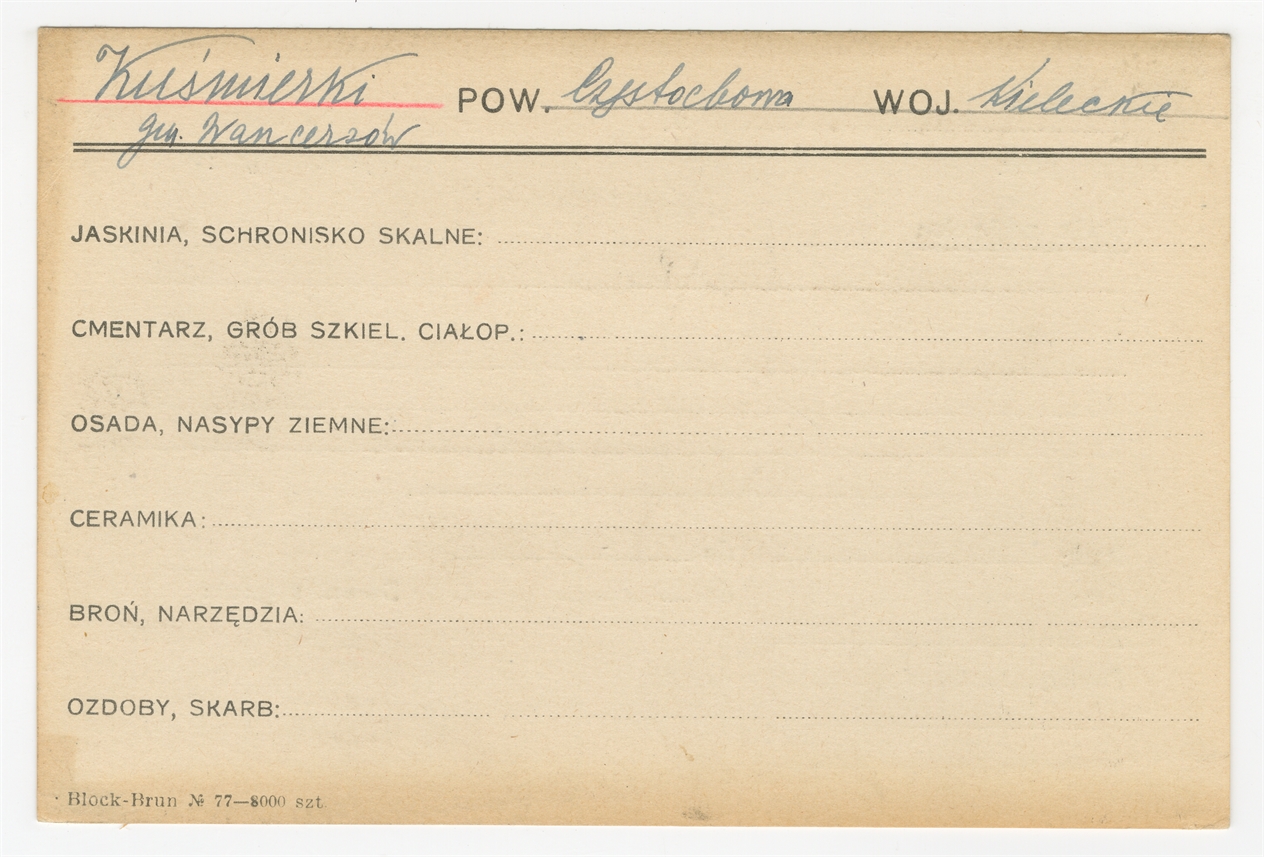 Kuśmierki POW. Częstochowa WOJ. Kieleckie
gm. Wancerzów
JASKINIA, SCHRONISKO SKALNE:
CMENTARZ, GRÓB SZKIEL. CIAŁOP.:
OSADA, NASYPY ZIEMNE:
CERAMIKA:
BROŃ, NARZĘDZIA:
OZDOBY, SKARB:
Block-Brun № 77—8000 szt